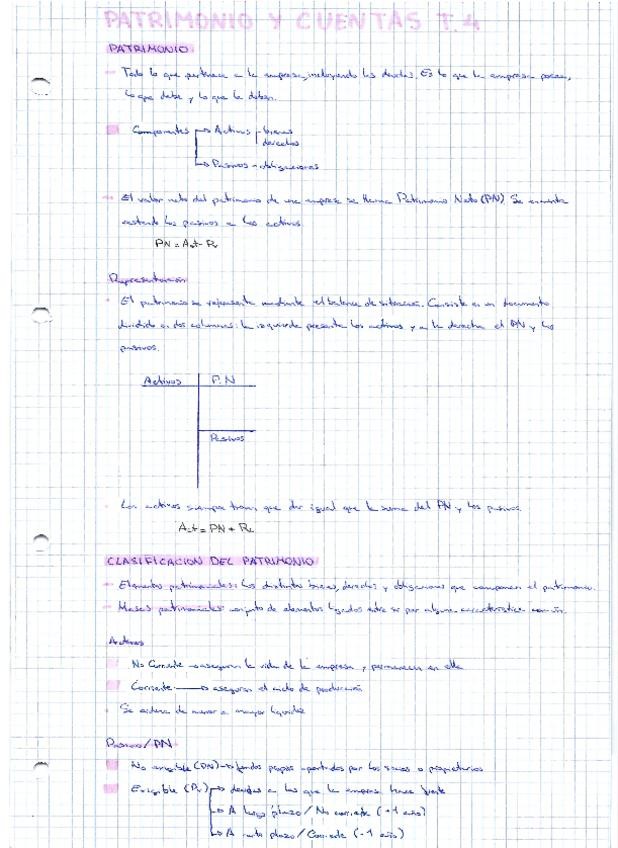 PATRIMONIO Y CUENTAS T.4
PATRIMONIO
- Todo lo que pertenece a la empresa, incluyendo las deudas. Es lo que la empresa posee,
lo que debe y lo que le deben.
Componentes → Activos bienes
derechos
→ Pasivos - obligaciones
- El valor neto del patrimonio de una empresa se llama Patrimonio Neto (PN). Se encuentra
restando los pasivos a los activos
PN = Act - Ps
Representación
El patrimonio se representa mediante el balance de situación. Consiste en un documento
dividido en dos columnas: la izquierda presenta los activos y a la derecha el PN y los
pasivos.
Activos P.N
Pasivos
Los activos siempre tienen que dar igual que la suma del PN y los pasivos.
Act = PN + Ps
CLASIFICACION DEL PATRIMONIO
- Elementos patrimoniales: los distintos bienes, derechos y obligaciones que componen el patrimonio.
- Masas patrimoniales: conjunto de elementos ligados entre sí por alguna característica común.
Activos
No Corriente → aseguran la vida de la empresa y permanecen en ella
Corriente → aseguran el ciclo de producción
Se ordena de menor a mayor liquidez
Pasivos/PN
No exigible (PN) → fondos propios aportados por los socios o propietarios
Exigible (Ps) → deudas a las que la empresa hace frente
→ A largo plazo / No corriente (+1 año)
→ A corto plazo / Corriente (-1 año)